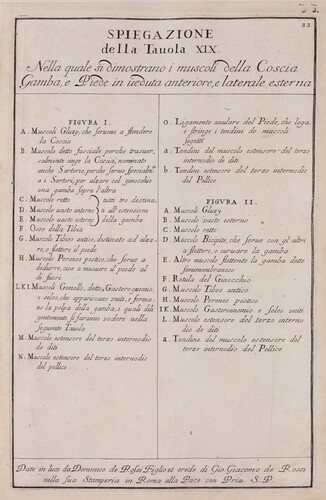 33
SPIEGAZIONE
della Tauola XIX.
Nella quale si dimostrano i muscoli della Coscia
Gamba, e Piede in ueduta anteriore, e laterale esterna
FIGVRA I.
A. Muscoli Glutzy, che seruono a stendere
la Coscia
B. Muscolo detto fasciale perche trasuer,
salmente cinge la Coscia, nominato
anche Sartorio, perche serue specialm.
a i Sartori, per alzare col ginocchio
una gamba sopra l'altra
C. Muscolo retto
D. Muscolo uasto interno
E. Muscolo uasto esterno
tutti tre destina,
ti all' estensione
della gamba
F. Osso della Tibia
G. Muscolo Tibeo antico, destinato ad alza,
re, o flettere il piede
H. Muscolo Peroneo postico, che serue a
dedurre, cioe a muouere il piede al
di fuori
I.K I. Muscoli Gemelli, detti Gasterocnemio,
e soleo, che appariscano uniti, e forma,
no la polpa della gamba, i quali di
gentemente si faranno uedere nella
seguente Tauola
M. Muscolo estensore del terzo internodio
de diti
N. Muscolo estensore del terzo internodio
del pollice
O. Ligamento anulare del Piede, che lega,
e stringe i tendini de muscoli
sogetti
a. Tendini del muscolo estensore del terzo
internodio de diti
b. Tendini estensore del terzo internodio
del Pollice
FIGVRA II.
A. Muscoli Glutzy
B. Muscolo uasto esterno
C. Muscolo retto
D. Muscolo Bicipite, che serue con gli altri
a flettere, o curuare la gamba
E. Altro muscolo flettente la gamba detto
semimembranoso
F. Rotula del Ginocchio
G. Muscolo Tibeo antico
H. Muscolo Peroneo postico
I K. Muscolo Gasterocnemio e soleo uniti
L. Muscolo estensore del terzo interno
dio de diti
a. Tendine del muscolo estensore del
terzo internodio del Pollice
Date in luce da Domenico de Rossi Figlio et erede di Gio Giacomo de Rossi
nella sua Stamperia in Roma alla Pace con Priu. S. P.